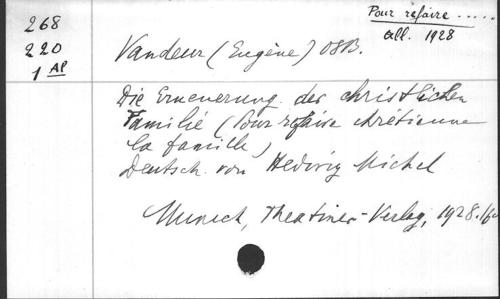 Pour refaire .....
all. 1928
268
220
1 AP
Vandeur (Eugène) OSB.
Die Erneuerung der christlichen
Familie (Pour refaire chrétienne
la famille)
Deutsch von Hedwig Michel
Munich, Theatiner-Verlag, 1928.